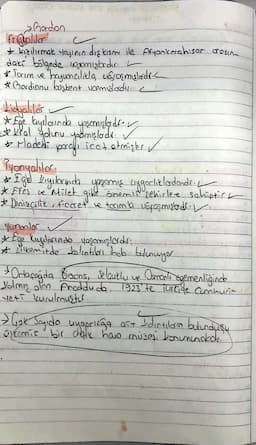 → Gordon
Frigyalılar
* Kızılırmak yayının dış kısmı ile Afyonkarahisar arasın
daki bölgede yaşamışlardır.
* Tarım ve hayvancılıkla uğraşmışlardır
* Gordionu başkent yapmışlardır.
Lidyalılar
* Ege kıyılarında yaşamışlardır.
* Kral yolunu yapmışlardır.
* Madeni parayı icat etmişler
İyonyalılar
* Ege kıyılarında yaşamış uygarlıklardandır.
* Efes ve Milet gibi önemli şehirlere sahiptir
* Denizcilik, ticaret ve tarımla uğraşmışlardır.
Yunanlar
* Ege kıyılarında yaşamışlardır.
* Ülkemizde kalıntıları hala bulunuyor
→ Ortaçağda Bizans, Selçuklu ve Osmanlı egemenliğinde
kalmış olan Anadoluda, 1923'te Türkiye Cumhuri
yeti kurulmuştur
→ Çok sayıda uygarlığa ait kalıntıların bulunduğu
ülkemiz bir açık hava müzesi konumundadır.